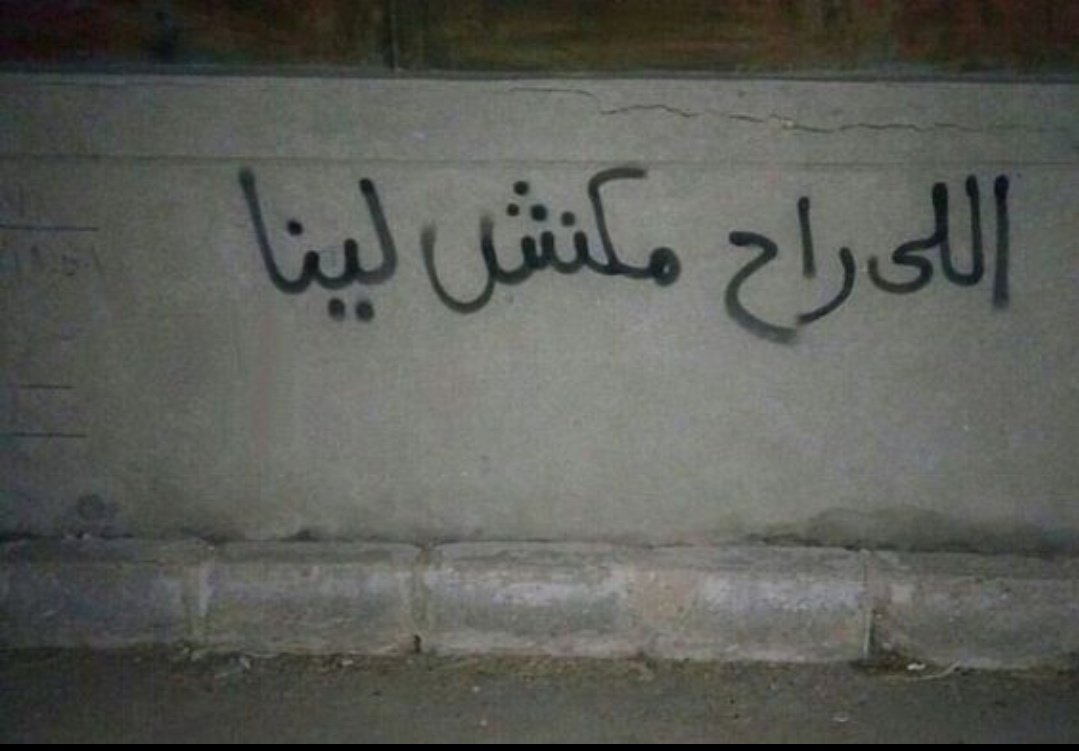 اللى راح مكنش لينا